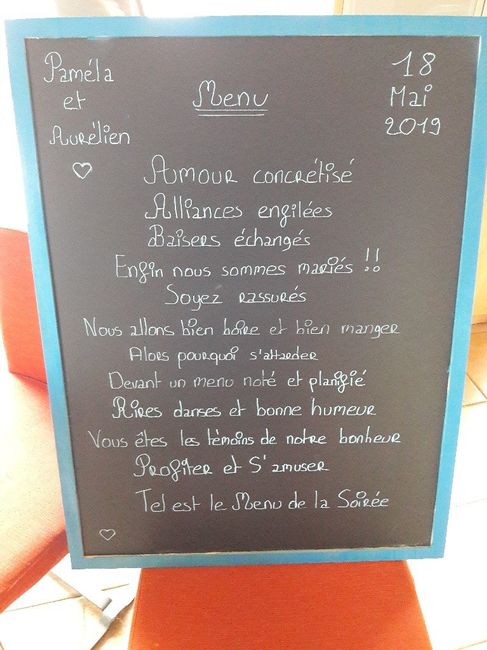 Paméla
et
Aurélien
Menu
18
Mai
2019
Amour concrétisé
Alliances enfilées
Baisers échangés
Enfin nous sommes mariés !!
Soyez rassurés
Nous allons bien boire et bien manger
Alors pourquoi s'attarder
Devant un menu noté et planifié
Rires danses et bonne humeur
Vous êtes les témoins de notre bonheur
Profiter et S'amuser
Tel est le Menu de la Soirée